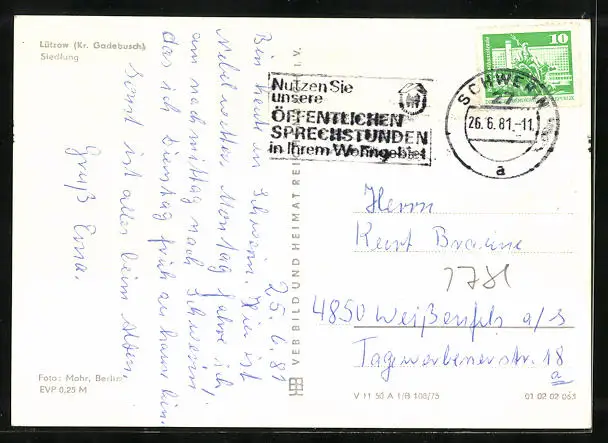 Lützow (Kr. Gadebusch)
Siedlung
25.6.81
Bin heute in Schwerin. Hier ist
Nebelwetter Montag fahre ich
am nachmittag nach Schwerin
das ich Dienstag früh zu hause bin.
Sonst ist alles beim Alten,
Gruß Erna.
Foto: Mohr, Berlin
EVP 0,25 M
VEB BILD UND HEIMAT REICHENBACH I. V.
V 11 50 A 1/B 108/75
01 02 02 063
10
Nutzen Sie
unsere
ÖFFENTLICHEN
SPRECHSTUNDEN
in Ihrem Wohngebiet
SCHWERIN
27
26.6.81.-11
a
Herrn
Kurt Braune
1781
4850 Weißenfels a/s
Tagewerbenerstr. 18
a